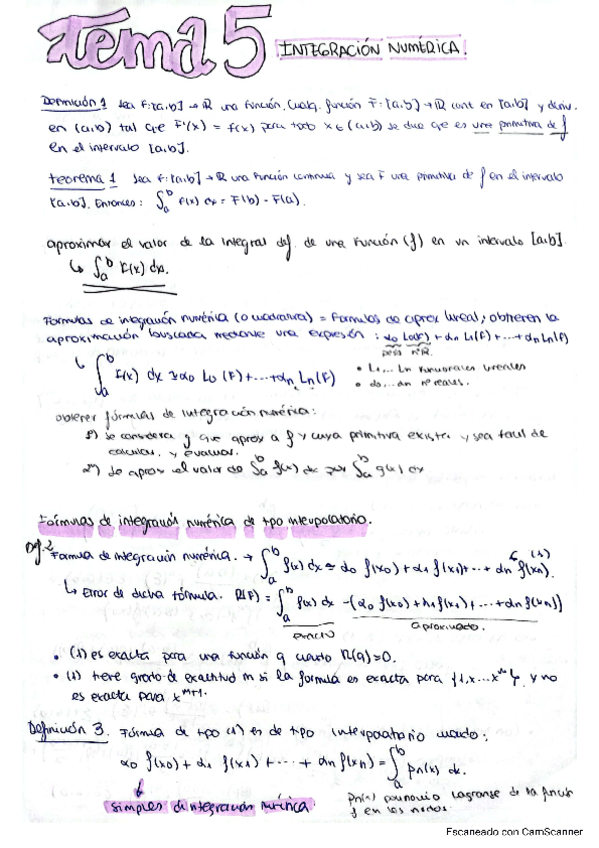 Tema 5 INTEGRACIÓN NUMÉRICA.
Definición 1 Sea F:[a,b] → ℝ una función. Cualq. función F̄:[a,b] → ℝ cont en [a,b] y deriv.
en (a,b) tal que F'(x) = f(x) para todo x ∈ (a,b) se dice que es una primitiva de f
en el intervalo [a,b].
teorema 1 Sea f:[a,b] → ℝ una función continua y sea F una primitiva de f en el intervalo
[a,b]. Entonces: ∫ₐᵇ f(x) dx = F(b) - F(a).
aproximar el valor de la integral def. de una función (f) en un intervalo [a,b].
↳ ∫ₐᵇ f(x) dx.
Formulas de integración numérica (o cuadratura) = Formulas de aprox lineal; obtienen la
aproximación buscada mediante una expresión : α₀ L₀(F) + α₁ L₁(F) + ... + αₙ Lₙ(F)
pesos nºℝ.
↳ ∫ₐᵇ f(x) dx ≃ α₀ L₀(F) + ... + αₙ Lₙ(F)
• L₀... Lₙ funcionales lineales
• α₀...αₙ nº reales.
obtener fórmulas de integración numérica:
1º) se considera g que aprox a f y cuya primitiva exista y sea facil de
calcular y evaluar.
2º) se aprox el valor de ∫ₐᵇ f(x) dx por ∫ₐᵇ g(x) dx
Formulas de integración numérica de tipo interpolatorio.
Def. 2 Formula de integración numérica. → ∫ₐᵇ f(x) dx ≃ α₀ f(x₀) + α₁ f(x₁) + ... + αₙ f(xₙ). (1)
↳ Error de dicha fórmula. R(F) = ∫ₐᵇ f(x) dx - (α₀ f(x₀) + α₁ f(x₁) + ... + αₙ f(xₙ))
exacto aproximado.
• (1) es exacta para una función g cuando R(g)=0.
• (1) tiene grado de exactitud m si la formula es exacta para {1,x...xᵐ} y no
es exacta para xᵐ⁺¹.
Definición 3. Fórmula de tipo (1) es de tipo interpolatorio cuando:
α₀ f(x₀) + α₁ f(x₁) + ... + αₙ f(xₙ) = ∫ₐᵇ pₙ(x) dx.
simples de integración numérica.
pₙ(x) polinomio Lagrange de la función
f en los nodos.
Escaneado con CamScanner